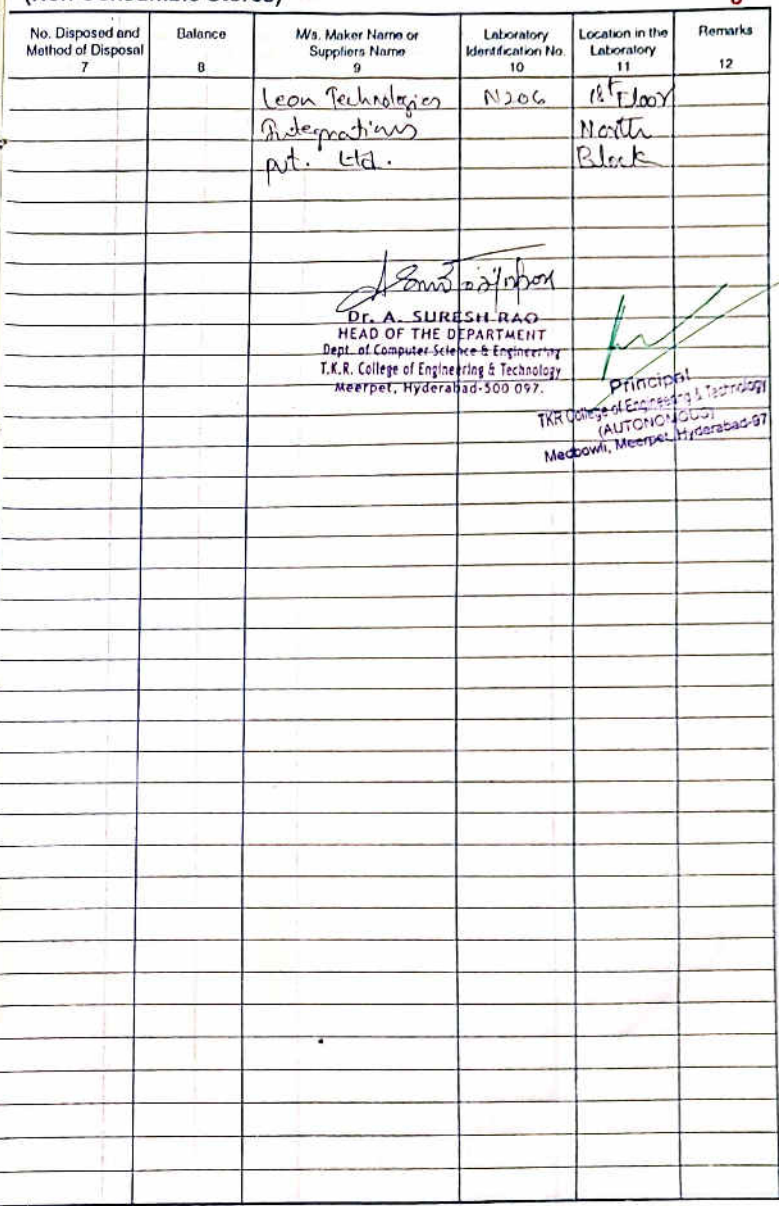 No. Disposed and Method of Disposal 7
Balance 8
M/s. Maker Name or Suppliers Name 9
Laboratory Identification No. 10
Location in the Laboratory 11
Remarks 12
Leon Technologies N206 1st Floor
Integrations North
pvt. Ltd. Block
Dr. A. SURESH RAO
HEAD OF THE DEPARTMENT
Dept. of Computer Science & Engineering
T.K.R. College of Engineering & Technology
Meerpet, Hyderabad-500 097.
Principal
TKR College of Engineering & Technology
(AUTONOMOUS)
Medbowli, Meerpet, Hyderabad-97